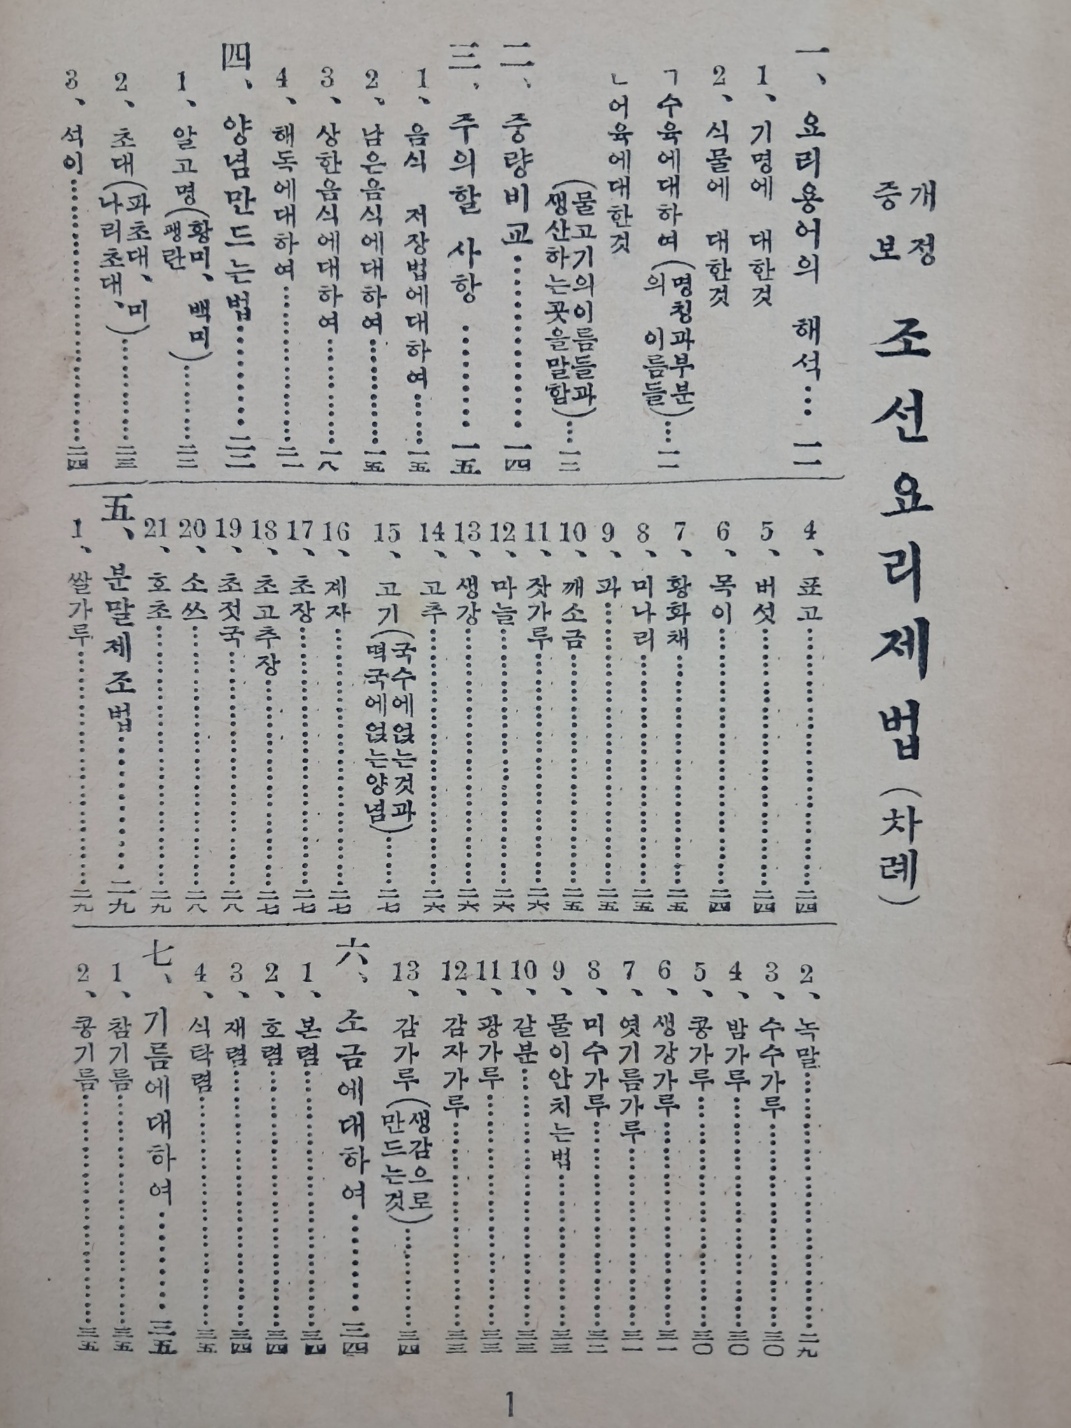 개정
증보
조선요리제법(차례)
一、요리용어의 해석…一一
1、기명에 대한것
2、식물에 대한것
ㄱ수육에대하여(명칭과부분의 이름들)…一一
ㄴ어육에대한것
(물고기의이름들과생산하는곳을말함)…一三
二、중량비교…一四
三、주의할 사항…一五
1、음식 저장법에대하여…一五
2、남은음식에대하여…一五
3、상한음식에대하여…一八
4、해독에대하여…二一
四、양념만드는법…二三
1、알고명(황미、백미팽란)…二三
2、초대(파초대、미나리초대、)…二三
3、석이…二四
4、표고…二四
5、버섯…二四
6、목이…二四
7、황화채…二五
8、미나리…二五
9、파…二五
10、깨소금…二五
11、잣가루…二六
12、마늘…二六
13、생강…二六
14、고추…二六
15、고기(국수에얹는것과떡국에얹는양념)…二七
16、겨자…二七
17、초장…二七
18、초고추장…二七
19、초젓국…二八
20、소쓰…二八
21、호초…二九
五、분말제조법…二九
1、쌀가루…二九
2、녹말…二九
3、수수가루…三〇
4、밤가루…三〇
5、콩가루…三〇
6、생강가루…三一
7、엿기름가루…三一
8、미수가루…三二
9、물이안치는법…三三
10、갈분…三三
11、광가루…三三
12、감자가루…三三
13、감가루(생감으로만드는것)…三四
六、소금에대하여…三四
1、본렴…三四
2、호렴…三四
3、재렴…三四
4、식탁렴…三五
七、기름에대하여…三五
1、참기름…三五
2、콩기름…三五
1